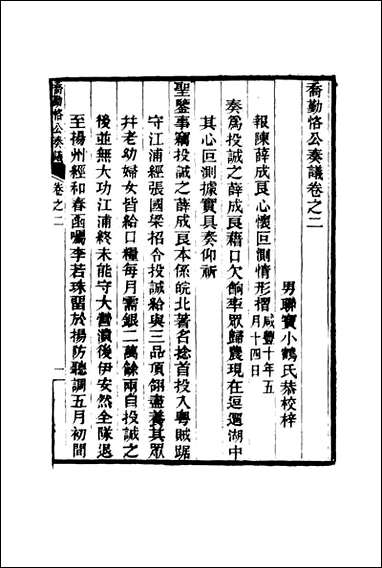 喬勤恪公奏議卷之二
男聯寶小鶴氏恭校梓
報陳薛成良心懷叵測情形摺咸豐十年五月十四日
奏爲投誠之薛成良藉口欠餉率眾歸農現在逗遛湖中
其心叵測據實具奏仰祈
聖鑒事竊投誠之薛成良本係皖北著名捻首投入粤賊踞
守江浦經張國樑招令投誠給與三品頂翎盡養其眾
幷老幼婦女皆給口糧每月需銀二萬餘兩自投誠之
後並無大功江浦終未能守大營潰後伊安然全隊退
至揚州經和春函囑李若珠留於揚防聽調五月初間
喬勤恪公奏議
卷之二
一